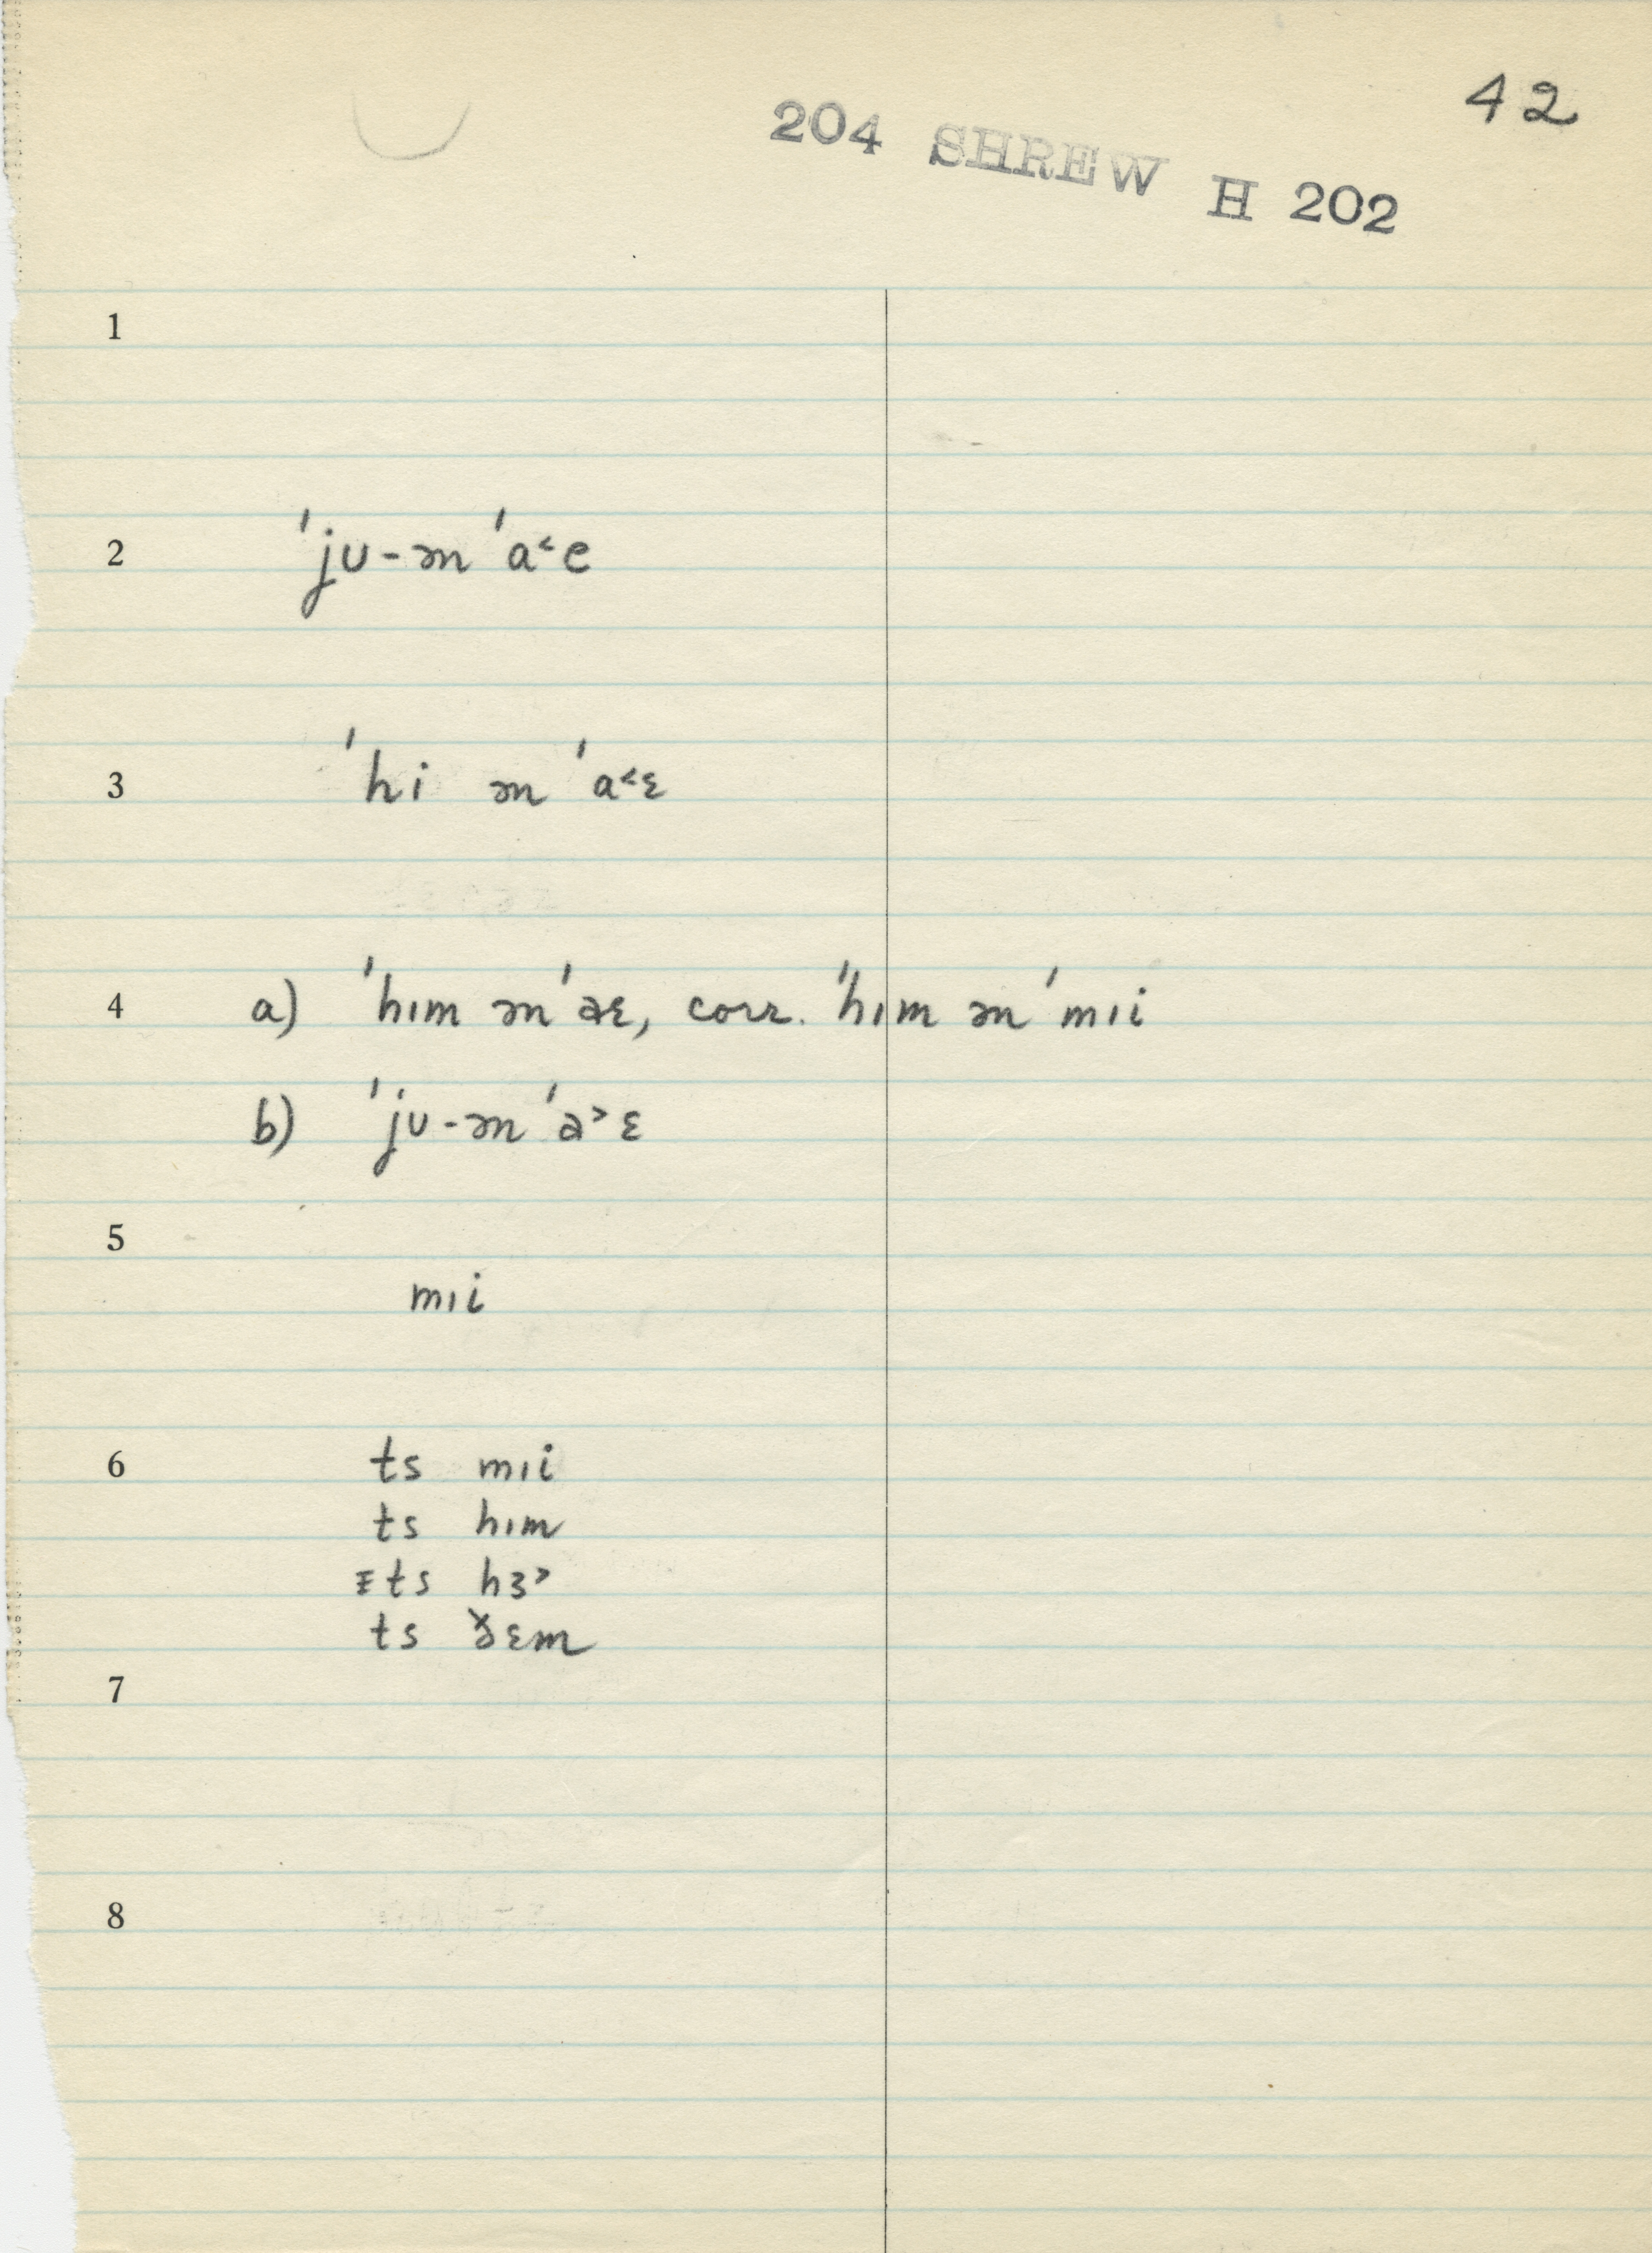 42
204 SHREW H 202
1
2 ˈju-ən ˈa˂e
3 ˈhi ən ˈa˂ɛ
4 a) ˈhɪm ən ˈaɛ, corr. ˈhɪm ən ˈmɪi
b) ˈju-ən ˈa˃ɛ
5
mɪi
6 ts mɪi
ts hɪm
ɪts hɜ˃
ts ð̌ɛm
7
8